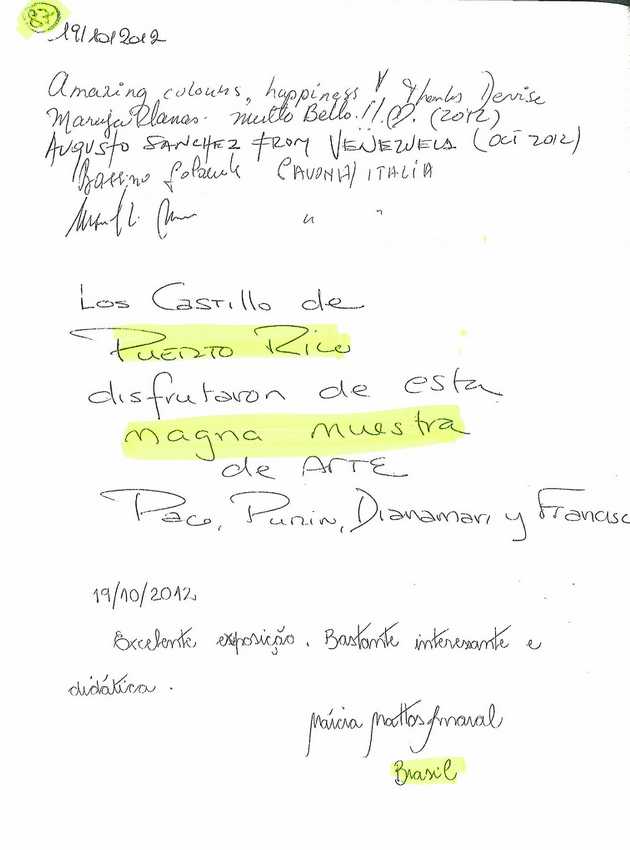 87
19/10/2012
Amazing colours, happiness & thanks Denise
Maruja Llanas. Multo Bello!! (2012)
AUGUSTO SANCHEZ FROM VENEZUELA (OCT 2012)
(SAVONA) ITALIA
" "
Los Castillo de
PUERTO RICO
disfrutaron de esta
magna muestra
de ARTE
Paco, Purin, Dianamari y Francisc
19/10/2012
Excelente exposição. Bastante interessante e
didática.
Márcia Mattos Amaral
Brasil